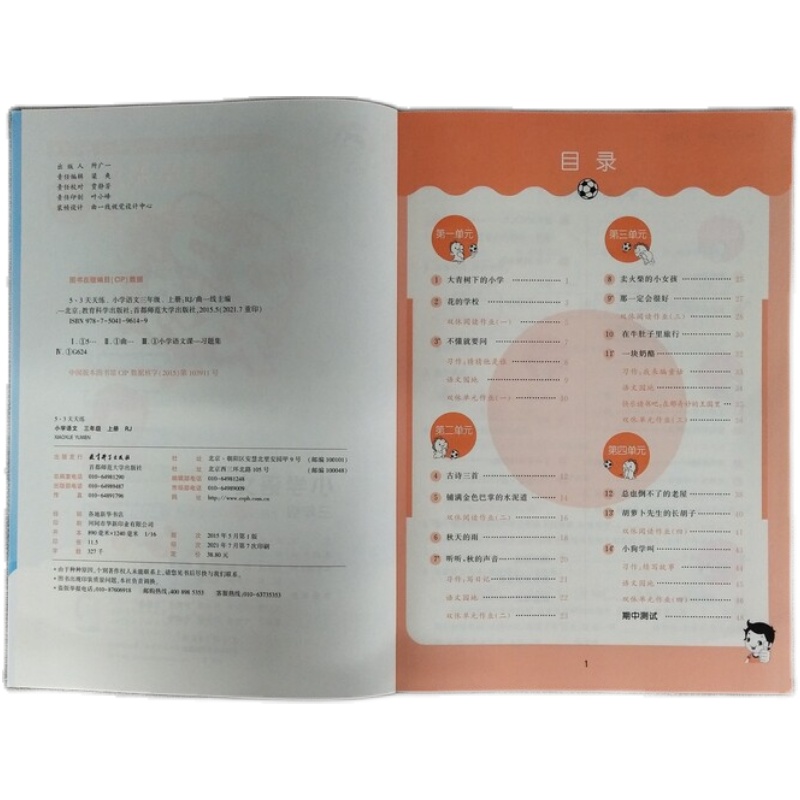 出 版 人 所广一
责任编辑 梁 夷
责任校对 贾静芳
责任印制 叶小峰
装帧设计 曲一线视觉设计中心
图书在版编目(CIP)数据
5·3天天练. 小学语文三年级. 上册:RJ/曲一线主编
.—北京:教育科学出版社:首都师范大学出版社,2015.5(2021.7重印)
ISBN 978-7-5041-9614-9
Ⅰ.①5… Ⅱ.①曲… Ⅲ.①小学语文课—习题集
Ⅳ.①G624
中国版本图书馆CIP数据核字(2015)第103911号
5·3天天练
小学语文 三年级 上册 RJ
XIAOXUE YUWEN
出版发行 教育科学出版社
首都师范大学出版社
社 址 北京·朝阳区安慧北里安园甲9号 (邮编100101)
社 址 北京西三环北路105号 (邮编100048)
010-64981290
010-64981248
010-64989487
010-64989009
传 真 010-64891796
网 址 http://www.esph.com.cn
经 销 各地新华书店
印 刷 河间市华新印业有限公司
开 本 890毫米×1240毫米 1/16
印 张 11.5
字 数 327千
版 次 2015年5月第1版
印 次 2021年7月第7次印刷
定 价 38.80元
·由于种种原因,个别著作权人未能联系上,请您见书后尽快与我们联系。
·图书出现印装质量问题,本社负责调换。
·盗版举报电话:010-87606918 邮购热线:400 898 5353 客服热线:010-63735353
目 录
第一单元
1 大青树下的小学 1
2 花的学校
双休阅读作业(一)
3 不懂就要问
习作:猜猜他是谁
语文园地
双休单元作业(一)
第二单元
4 古诗三首
5 铺满金色巴掌的水泥道 14
双休阅读作业(二)
6 秋天的雨
7 听听,秋的声音
习作:写日记
语文园地
双休单元作业(二) 23
第三单元
8 卖火柴的小女孩 25
9 那一定会很好
双休阅读作业(三)
10 在牛肚子里旅行
11 一块奶酪
习作:我来编童话
语文园地
快乐读书吧:在那奇妙的王国里
双休单元作业(三)
第四单元
12 总也倒不了的老屋
13 胡萝卜先生的长胡子
双休阅读作业(四)
14 小狗学叫
习作:续写故事
语文园地
双休单元作业(四)
期中测试
1